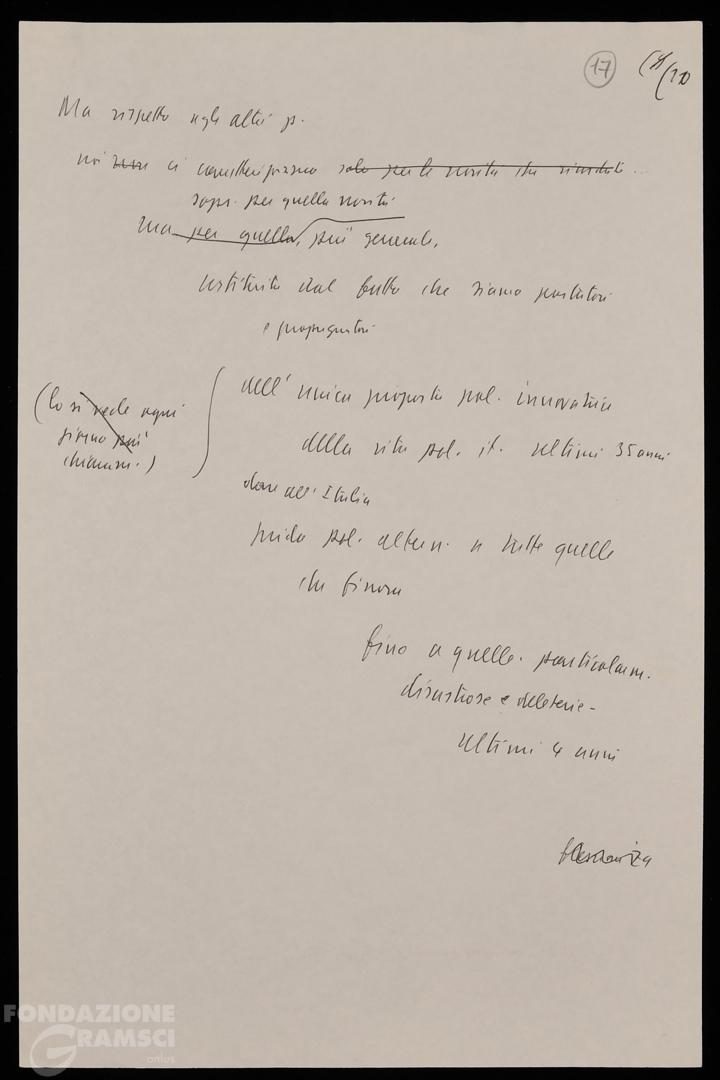 17
Ma rispetto agli altri p.
noi non ci caratterizziamo solo per le novità che
sopr. per quella novità
ma per quella, più generale,
costituita dal fatto che siamo portatori
e propugnatori
dell'unica proposta pol. innovatrice
della vita pol. it. ultimi 35 anni
(lo si vede ogni
giorno più
chiaram.)
dare all'Italia
guida pol. altern. a tutte quelle
che finora
fino a quelle particolarm.
disastrose e deleterie -
ultimi 4 anni
FONDAZIONE
GRAMSCI
onlus